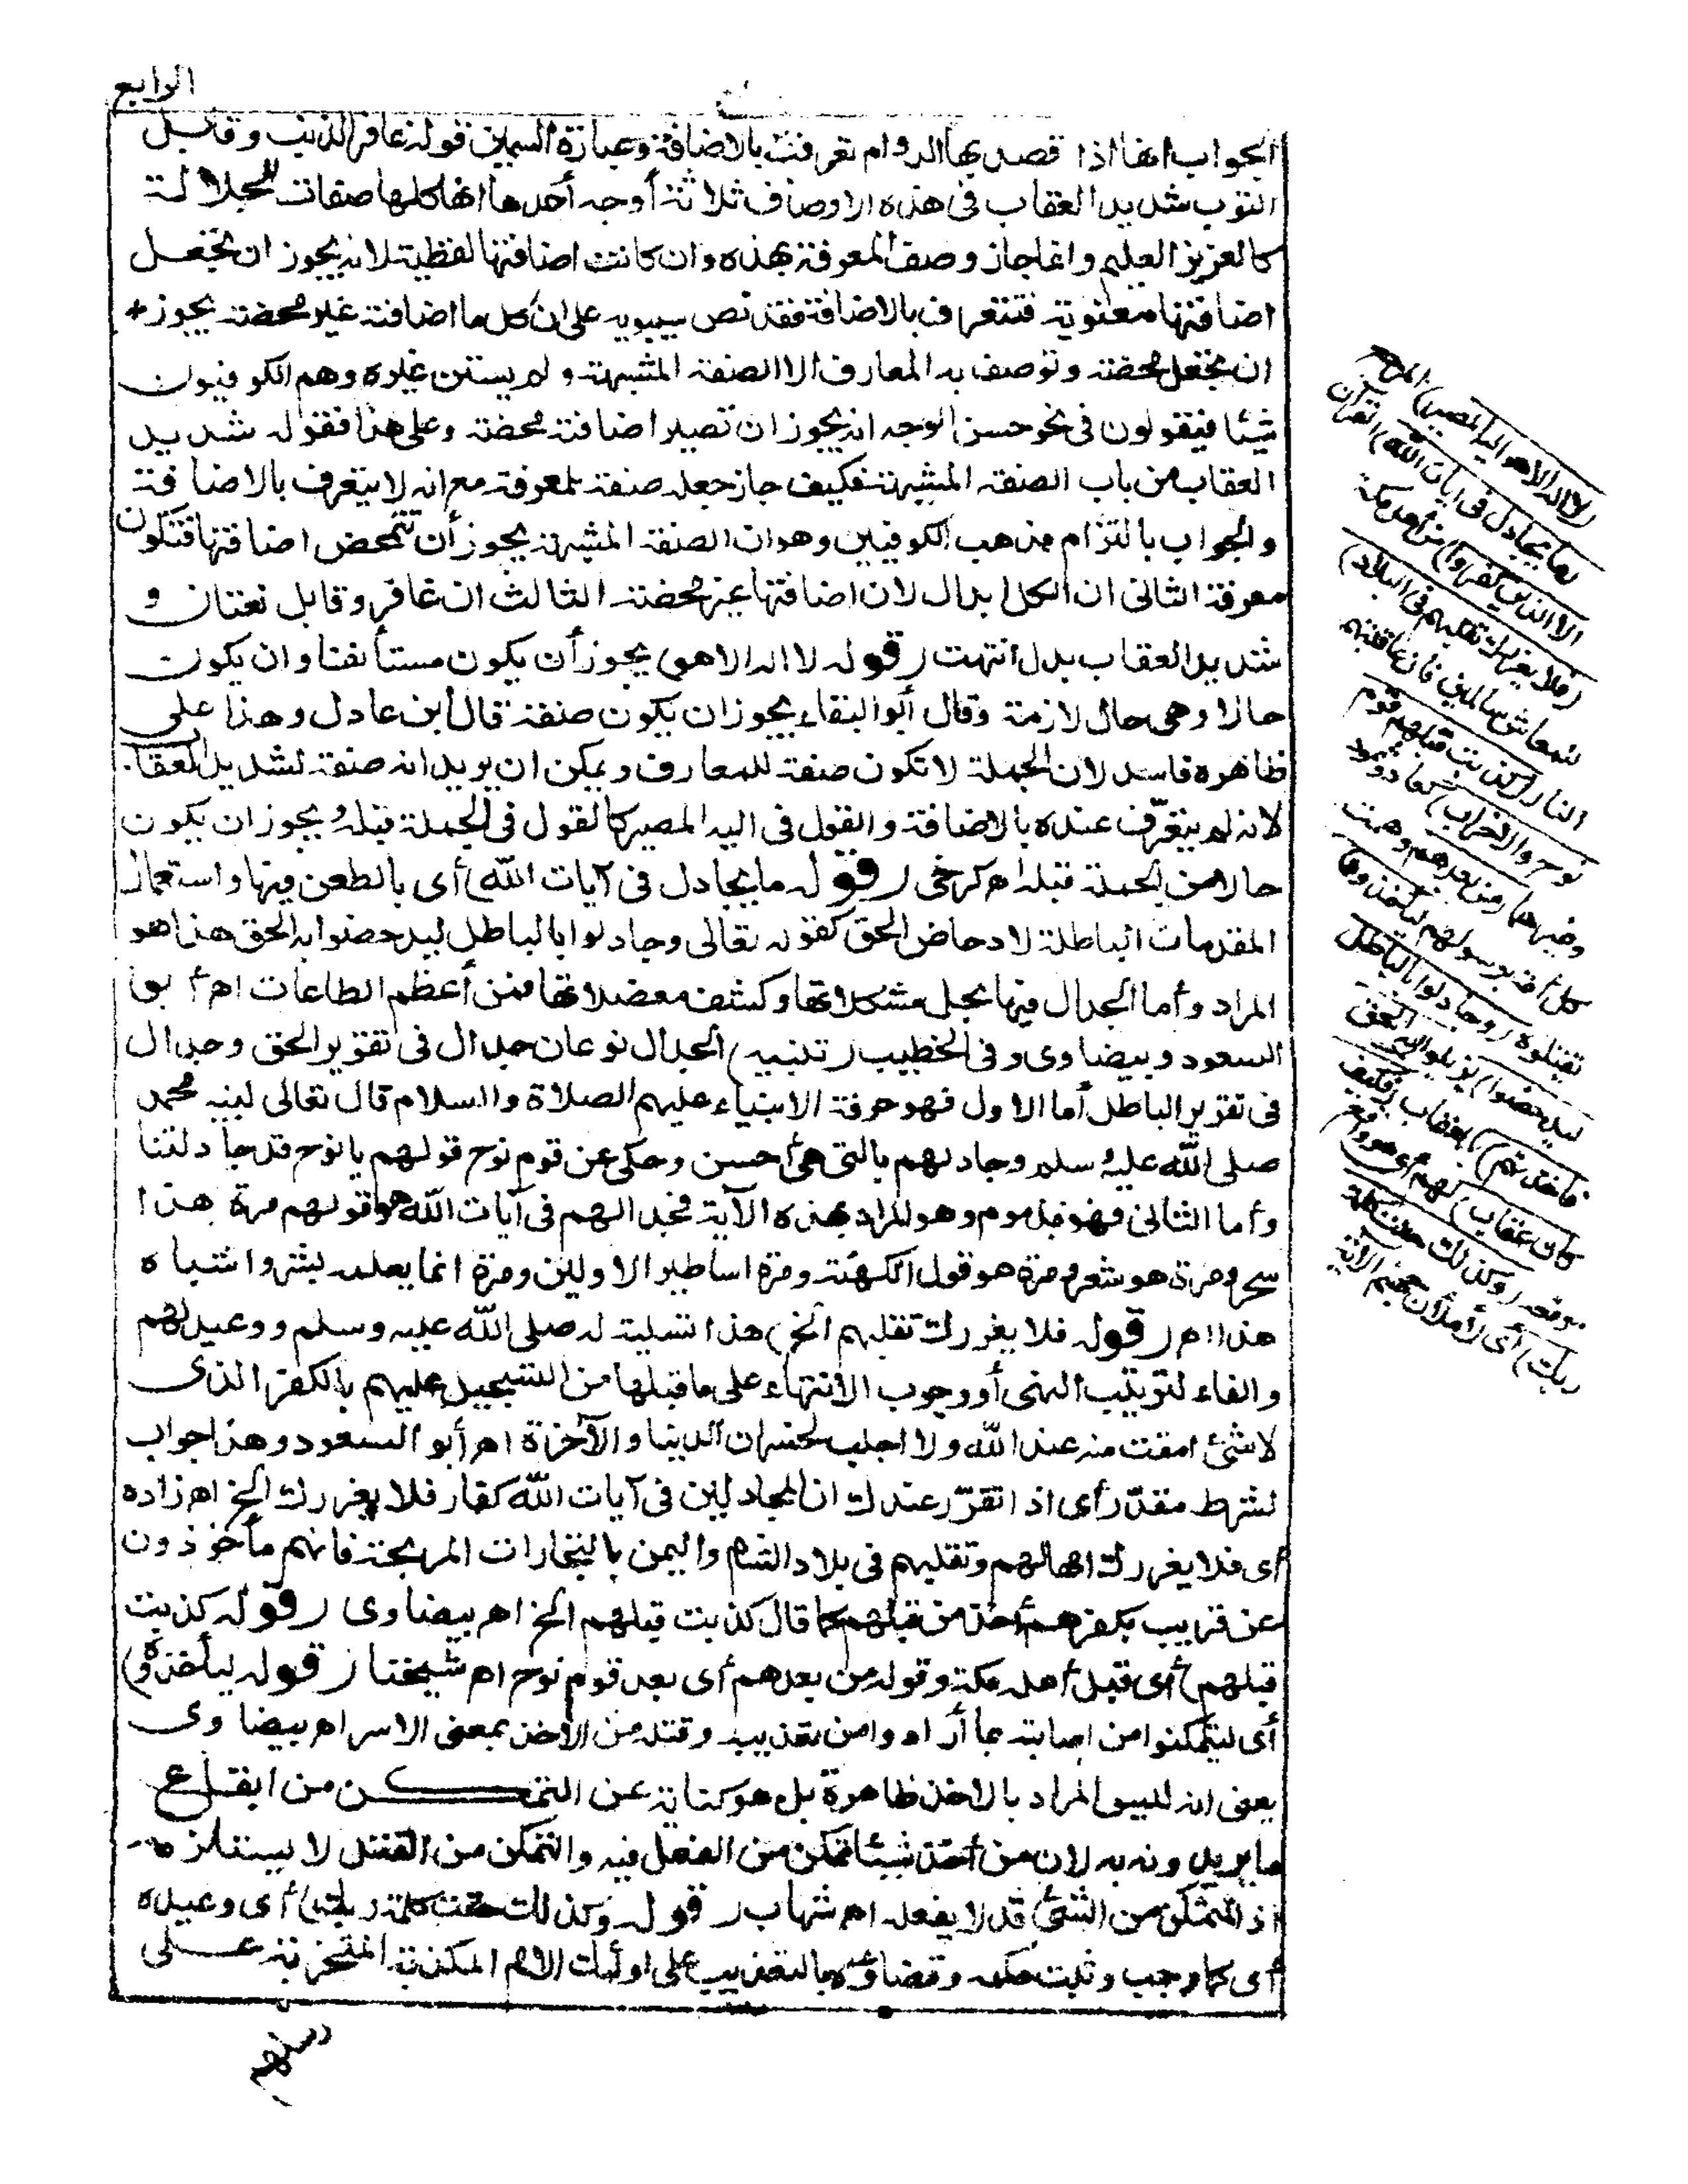 الرابع
الجواب انها اذا قصد بها الدوام تعرفت بالاضافة وعبارة السمين قوله غافر الذنب وقابل
التوب شديد العقاب فى هذه الاوصاف ثلاثة أوجه أحدها انها كلها صفات للجلالة
كالعزيز العليم وانما جاز وصف المعرفة بهذه وان كانت اضافتها لفظية لانه يجوز ان تجعل
اضافتها معنوية فتتعرف بالاضافة فقد نص سيبويه على ان كل ما اضافته غير محضة يجوز
ان تجعل محضة وتوصف به المعارف الا الصفة المشبهة ولم يستثن غيره وهم الكوفيون
شيئا فيقولون فى نحو حسن الوجه انه يجوز ان تصير اضافته محضة وعلى هذا فقوله شديد
العقاب من باب الصفة المشبهة فكيف جاز جعله صفة للمعرفة مع انه لا يتعرف بالاضافة
والجواب بالتزام مذهب الكوفيين وهو ان الصفة المشبهة يجوز أن تتمحض اضافتها فتكون
معرفة الثانى ان الكل ابدال لان اضافتها غير محضة الثالث ان غافر وقابل نعتان و
شديد العقاب بدل انتهت (قوله لا اله الا هو) يجوز أن يكون مستأنفا وان يكون
حالا وهى حال لازمة وقال أبو البقاء يجوز ان يكون صفة قال ابن عادل وهذا على
ظاهره فاسد لان الجملة لا تكون صفة للمعارف ويمكن ان يريد انه صفة لشديد العقاب
لانه لم يتعرّف عنده بالاضافة والقول فى اليه المصير كالقول فى الجملة قبله ويجوز ان يكون
حالا من الجملة قبله اهـ كرخى (قوله ما يجادل فى آيات الله) أى بالطعن فيها واستعمال
المقدمات الباطلة لادحاض الحق كقوله تعالى وجادلوا بالباطل ليدحضوا به الحق هذا هو
المراد وأما الجدال فيها بحل مشكلاتها وكشف معضلاتها فمن أعظم الطاعات اهـ أبو
السعود وبيضاوى وفى الخطيب (تنبيه) الجدال نوعان جدال فى تقرير الحق وجدال
فى تقرير الباطل أما الاول فهو حرفة الانبياء عليهم الصلاة والسلام قال تعالى لنبيه محمد
صلى الله عليه وسلم وجادلهم بالتى هى أحسن وحكى عن قوم نوح قولهم يا نوح قد جادلتنا
وأما الثانى فهو مذموم وهو المراد بهذه الآية فجدالهم فى آيات الله هو قولهم مرة هذا
سحر ومرة هو شعر ومرة هو قول الكهنة ومرة اساطير الاولين ومرة انما يعلمه بشر واشباه
هذا اهـ (قوله فلا يغررك تقلبهم الخ) هذا تسلية له صلى الله عليه وسلم ووعيد لهم
والفاء لترتيب النهى أو وجوب الانتهاء على ما قبلها من التسجيل عليهم بالكفر الذى
لا شئ امقت منه عند الله ولا اجلب لخسران الدنيا والآخرة اهـ أبو السعود وهذا جواب
لشرط مقدّر أى اذا تقرّر عندك ان المجادلين فى آيات الله كفار فلا يغررك الخ اهـ زاده
أى فلا يغررك امهالهم وتقلبهم فى بلاد الشام واليمن بالتجارات المربحة فانهم مأخوذون
عن قريب بكفرهم أخذ من قبلهم كما قال كذبت قبلهم الخ اهـ بيضاوى (قوله كذبت
قبلهم) أى قبل أهل مكة وقوله من بعدهم أى بعد قوم نوح اهـ شيخنا (قوله ليأخذوه)
أى ليتمكنوا من اصابته بما أرادوا من تعذيب وقتله من الأخذ بمعنى الاسر اهـ بيضاوى
يعنى انه ليس المراد بالاخذ ظاهره بل هو كناية عن التمكن من ايقاع
ما يريدونه به لان من أخذ شيئا تمكن من الفعل فيه والتمكن من القتل لا يستلزمه
اذ المتمكن من الشئ قد لا يفعله اهـ شهاب (قوله وكذلك حقت كلمة ربك) أى وعيده
أى كما وجب وثبت حكمه وقضاؤه بالتعذيب على اولئك الامم المكذبة المتحزبة على
(لا اله الا هو اليه المصير) المرجع
(ما يجادل فى ايات الله) القرآن
(الا الذين كفروا) من أهل مكة
(فلا يغررك تقلبهم فى البلاد)
للمعاش سالمين فان عاقبتهم
النار (كذبت قبلهم قوم
نوح والاحزاب) كعاد وثمود
وغيرهما (من بعدهم وهمت
كل أمة برسولهم ليأخذوه)
يقتلوه (وجادلوا بالباطل
ليدحضوا) يزيلوا (به الحق
فأخذتهم) بالعقاب (فكيف
كان عقاب) لهم أى هو واقع
موقعه (وكذلك حقت كلمة
ربك) أى لأملأن جهنم الاية